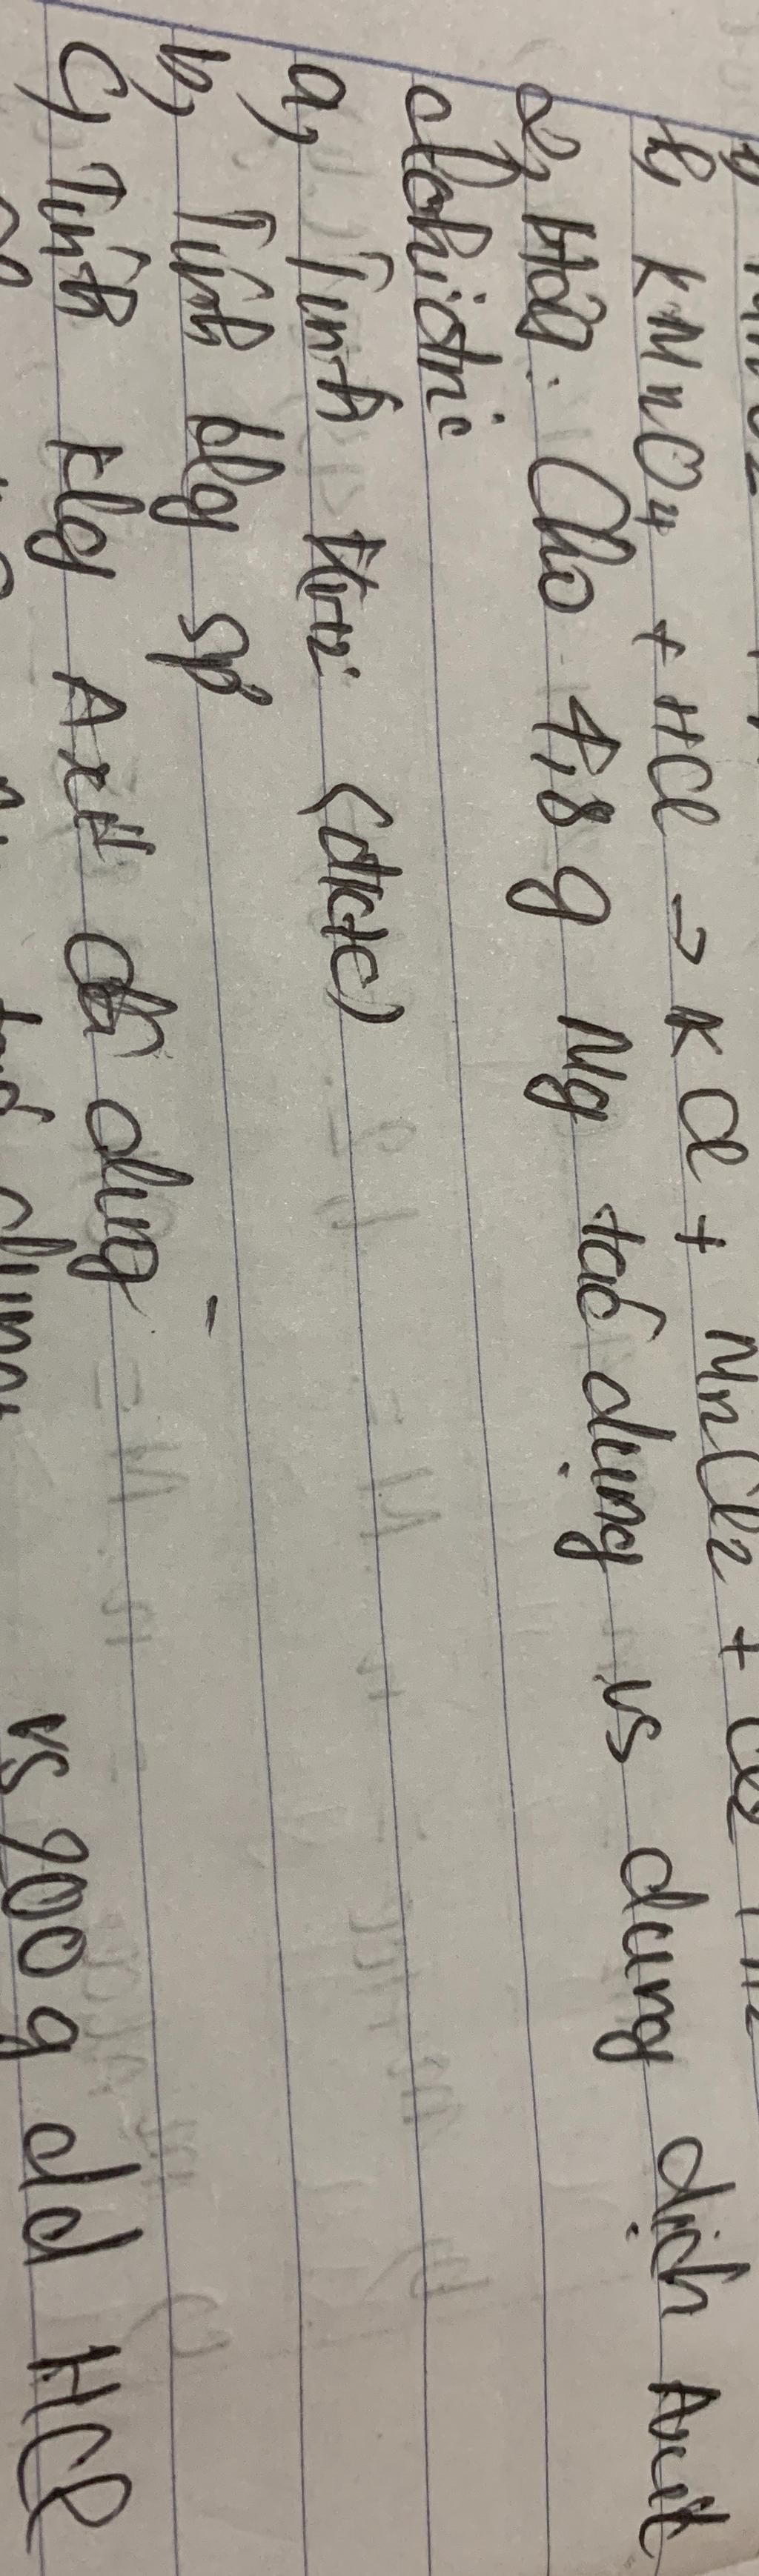 h, KMnO4 + HCl → KCl + MnCl2 + Cl2
2, Hóa: Cho 4,8 g Mg tác dụng vs dung dịch Axit
clohiđric
a, Tính VH2 (đktc)
b, Tính klg sp
c, Tính klg Axit đã dùng
vs 200 g dd HCl